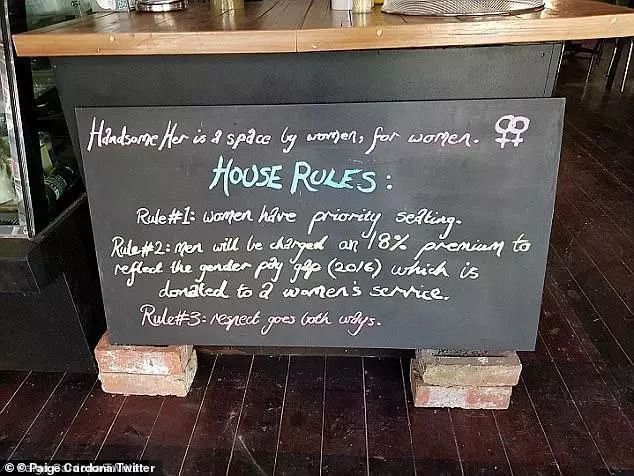 Handsome Her is a space by women, for women.
HOUSE RULES:
Rule #1: women have priority seating.
Rule #2: men will be charged an 18% premium to
reflect the gender pay gap (2016) which is
donated to a women's service.
Rule #3: respect goes both ways.
© Paige Cardona Twitter